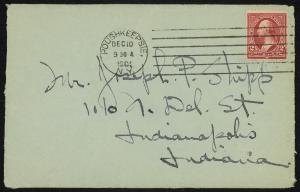 POUGHKEEPSIE
DEC 10
9 30 A
190
N.Y.
Mr. Joseph P. Shipp
1010 N. Del. St.
Indianapolis
Indiana